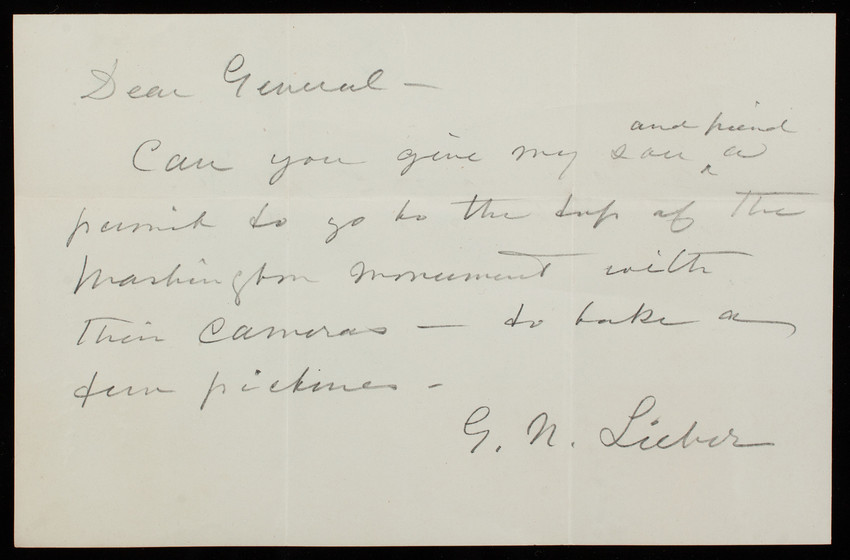 Dear General —
Can you give my son ‸ and friend a
permit to go to the top of the
Washington Monument with
their cameras — to take a
few pictures -
G. N. Lieber